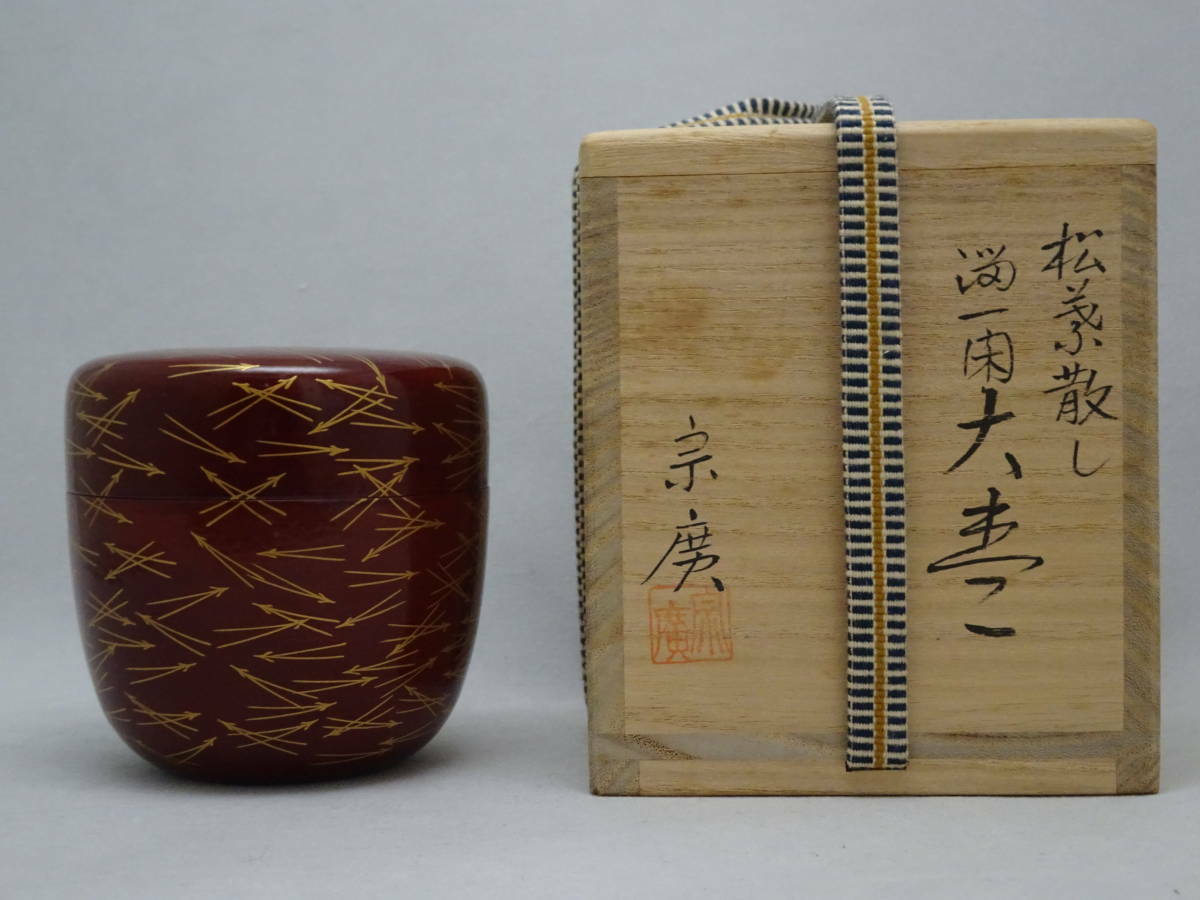 松葉散し
溜一閑大棗
宗廣
宗廣